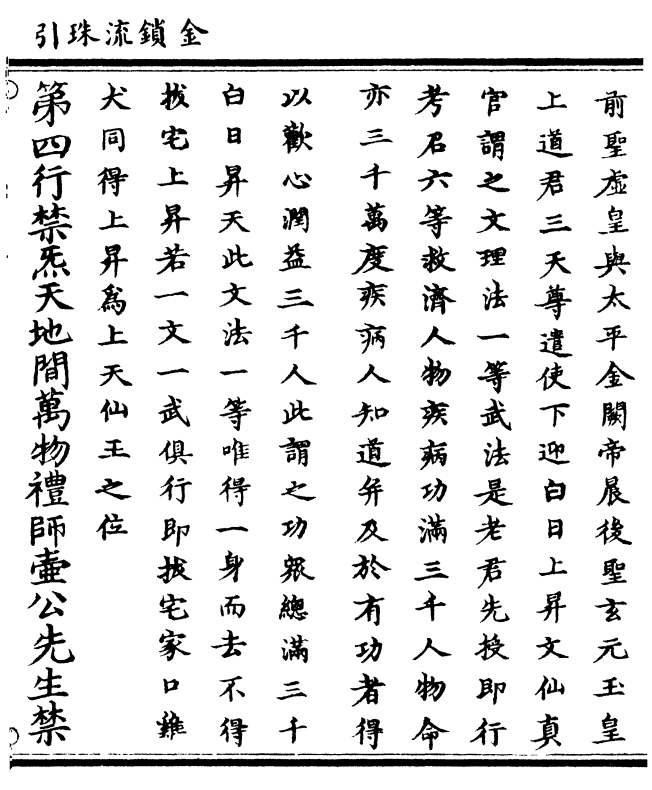 金鎖流珠引
前聖虛皇與太平金闕帝晨後聖玄元玉皇
上道君三天尊遣使下迎白日上昇文仙真
官謂之文理法一等武法是老君先授即行
考召六等救濟人物疾病功滿三千人物命
亦三千萬度疾病人知道并及於有功者得
以歡心潤益三千人此謂之功眾總滿三千
白日昇天此文法一等唯得一身而去不得
拔宅上昇若一文一武俱行即拔宅家口雞
犬同得上昇為上天仙王之位
第四行禁炁天地間萬物禮師壺公先生禁